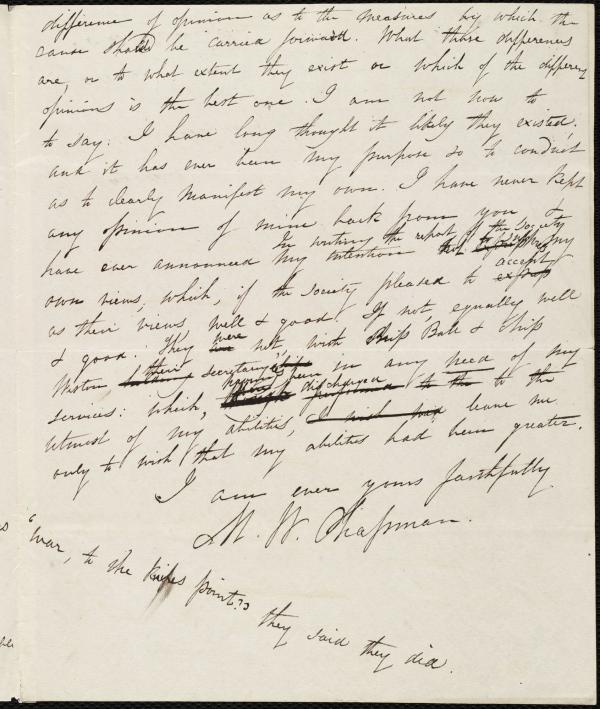 difference of opinion as to the measures by which the
cause should be carried forward. What those differences
are, or to what extent they exist or which of the differing
opinions is the best one. I am not now to
to say: I have long thought it likely they existed,
and it has ever been my purpose so to conduct
as to clearly manifest my own. I have never kept
any opinion of mine back from you &
In writing the report of the Society
have ever announced my intention to my
own views, which, if the Society pleased to accept
as their views, well & good. If not, equally well
& good. They were not, with Miss Ball & Miss
Weston their secretary in any need of my
services: which, discharged to the
utmost of my abilities, leave me
only to wish that my abilities had been greater.
I am ever yours faithfully
M. W. Chapman.
"War, to the knife's point?"
they said they did.